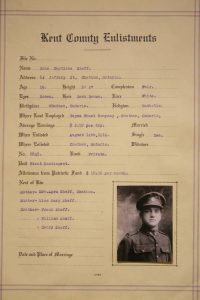 Kent County Enlistments
File No.
Name John Sheff.
Address 14 Jeffery St. Chatham, Ontario.
Age Height Complexion Fair.
Eyes Brown. Hair Dark Brown. Race White.
Birthplace Chatham, Ontario. Religion Catholic.
Where Last Employed Company, Chatham, Ontario.
Average Earnings per day. Married
When Enlisted August 1914. Single Yes.
Where Enlisted Chatham, Ontario. Widower
No. Rank Private.
Unit First Contingent.
Allowance from Patriotic Fund $ per month.
Next of Kin
Mother- Sheff, Chatham.
Sister- Miss Mary Sheff.
Brother- Frank Sheff.
" William Sheff.
" David Sheff.
Date and Place of Marriage